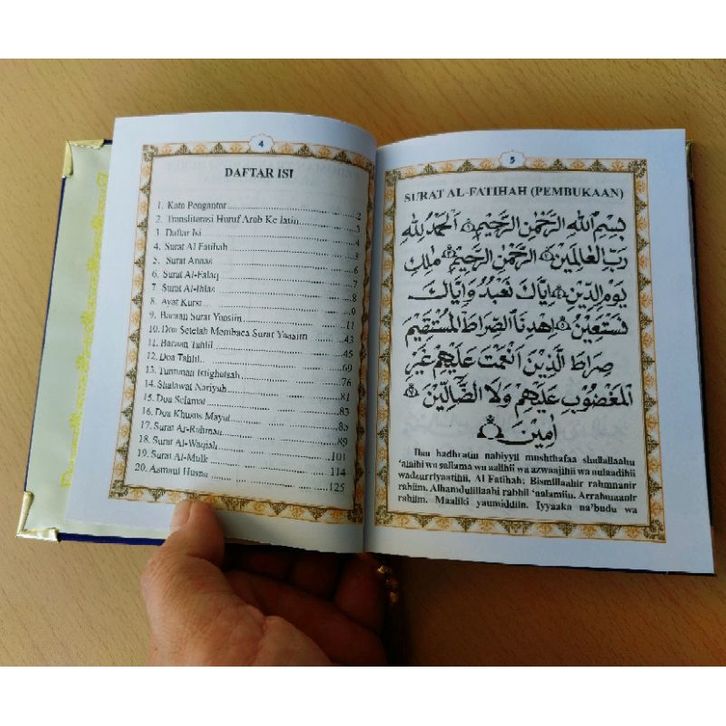 4
DAFTAR ISI
1. Kata Pengantar ........ 2
2. Transliterasi Huruf Arab Ke latin ........ 3
3. Daftar Isi ........ 4
4. Surat Al Fatihah ........ 5
5. Surat Annas ........ 6
6. Surat Al-Falaq ........ 6
7. Surat Al-Ihlas ........ 8
8. Ayat Kursi ........ 9
9. Bacaan Surat Yaasiin ........ 11
10. Doa Setelah Membaca Surat Yaasiin ........ 43
11. Bacaan Tahlil ........ 45
12. Doa Tahlil ........ 69
13. Tuntunan Istighotsah ........ 76
14. Shalawat Nariyah ........ 81
15. Doa Selamat ........ 83
16. Doa Khusus Mayat ........ 85
17. Surat Ar-Rahman ........ 89
18. Surat Al-Waqiah ........ 101
19. Surat Al-Mulk ........ 114
20. Asmaul Husna ........ 125
5
SURAT AL-FATIHAH (PEMBUKAAN)
بِسْمِ اللهِ الرَّحْمٰنِ الرَّحِيْمِ ۝ اَلْحَمْدُ لِلّٰهِ
رَبِّ الْعَالَمِيْنَ ۝ الرَّحْمٰنِ الرَّحِيْمِ ۝ مٰلِكِ
يَوْمِ الدِّيْنِ ۝ اِيَّاكَ نَعْبُدُ وَاِيَّاكَ
نَسْتَعِيْنُ ۝ اِهْدِنَا الصِّرَاطَ الْمُسْتَقِيْمَ
صِرَاطَ الَّذِيْنَ اَنْعَمْتَ عَلَيْهِمْ غَيْرِ
الْمَغْضُوْبِ عَلَيْهِمْ وَلَا الضَّآلِّيْنَ ۝
اٰمِيْنَ ۝
Ilaa hadhratin nabiyyil mushthafaa shallallaahu
'alaihi wa sallama wa aalihii wa azwaajihii wa aulaadihii
wadzurriyaatihii, Al Fatihah; Bismillaahir rahmaanir
rahiim. Alhamdulillaahi rabbil 'aalamiin. Arrahmaanir
rahiim. Maaliki yaumiddiin. Iyyaaka na'budu wa